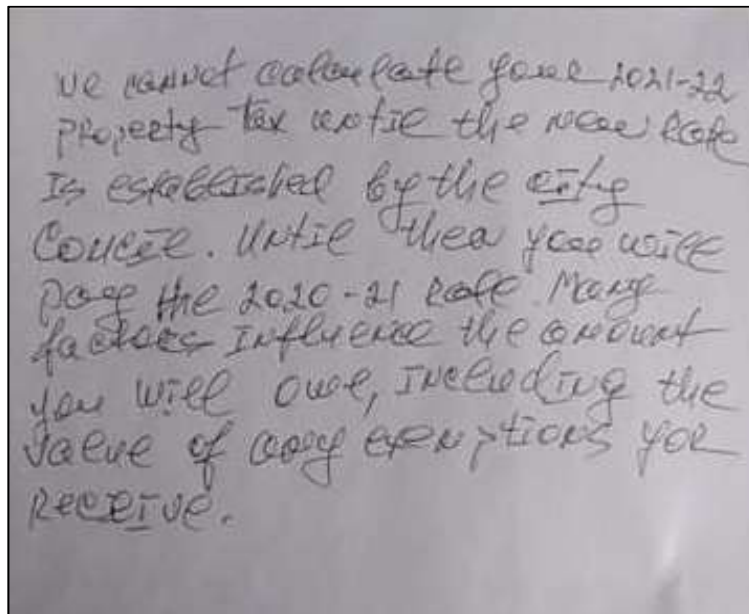 we cannot calculate your 2021-22
property tax until the new rate
Is established by the city
Council. Until then you will
pay the 2020-21 rate. Many
factors Influence the amount
you will owe, Including the
value of any exemptions you
Receive.